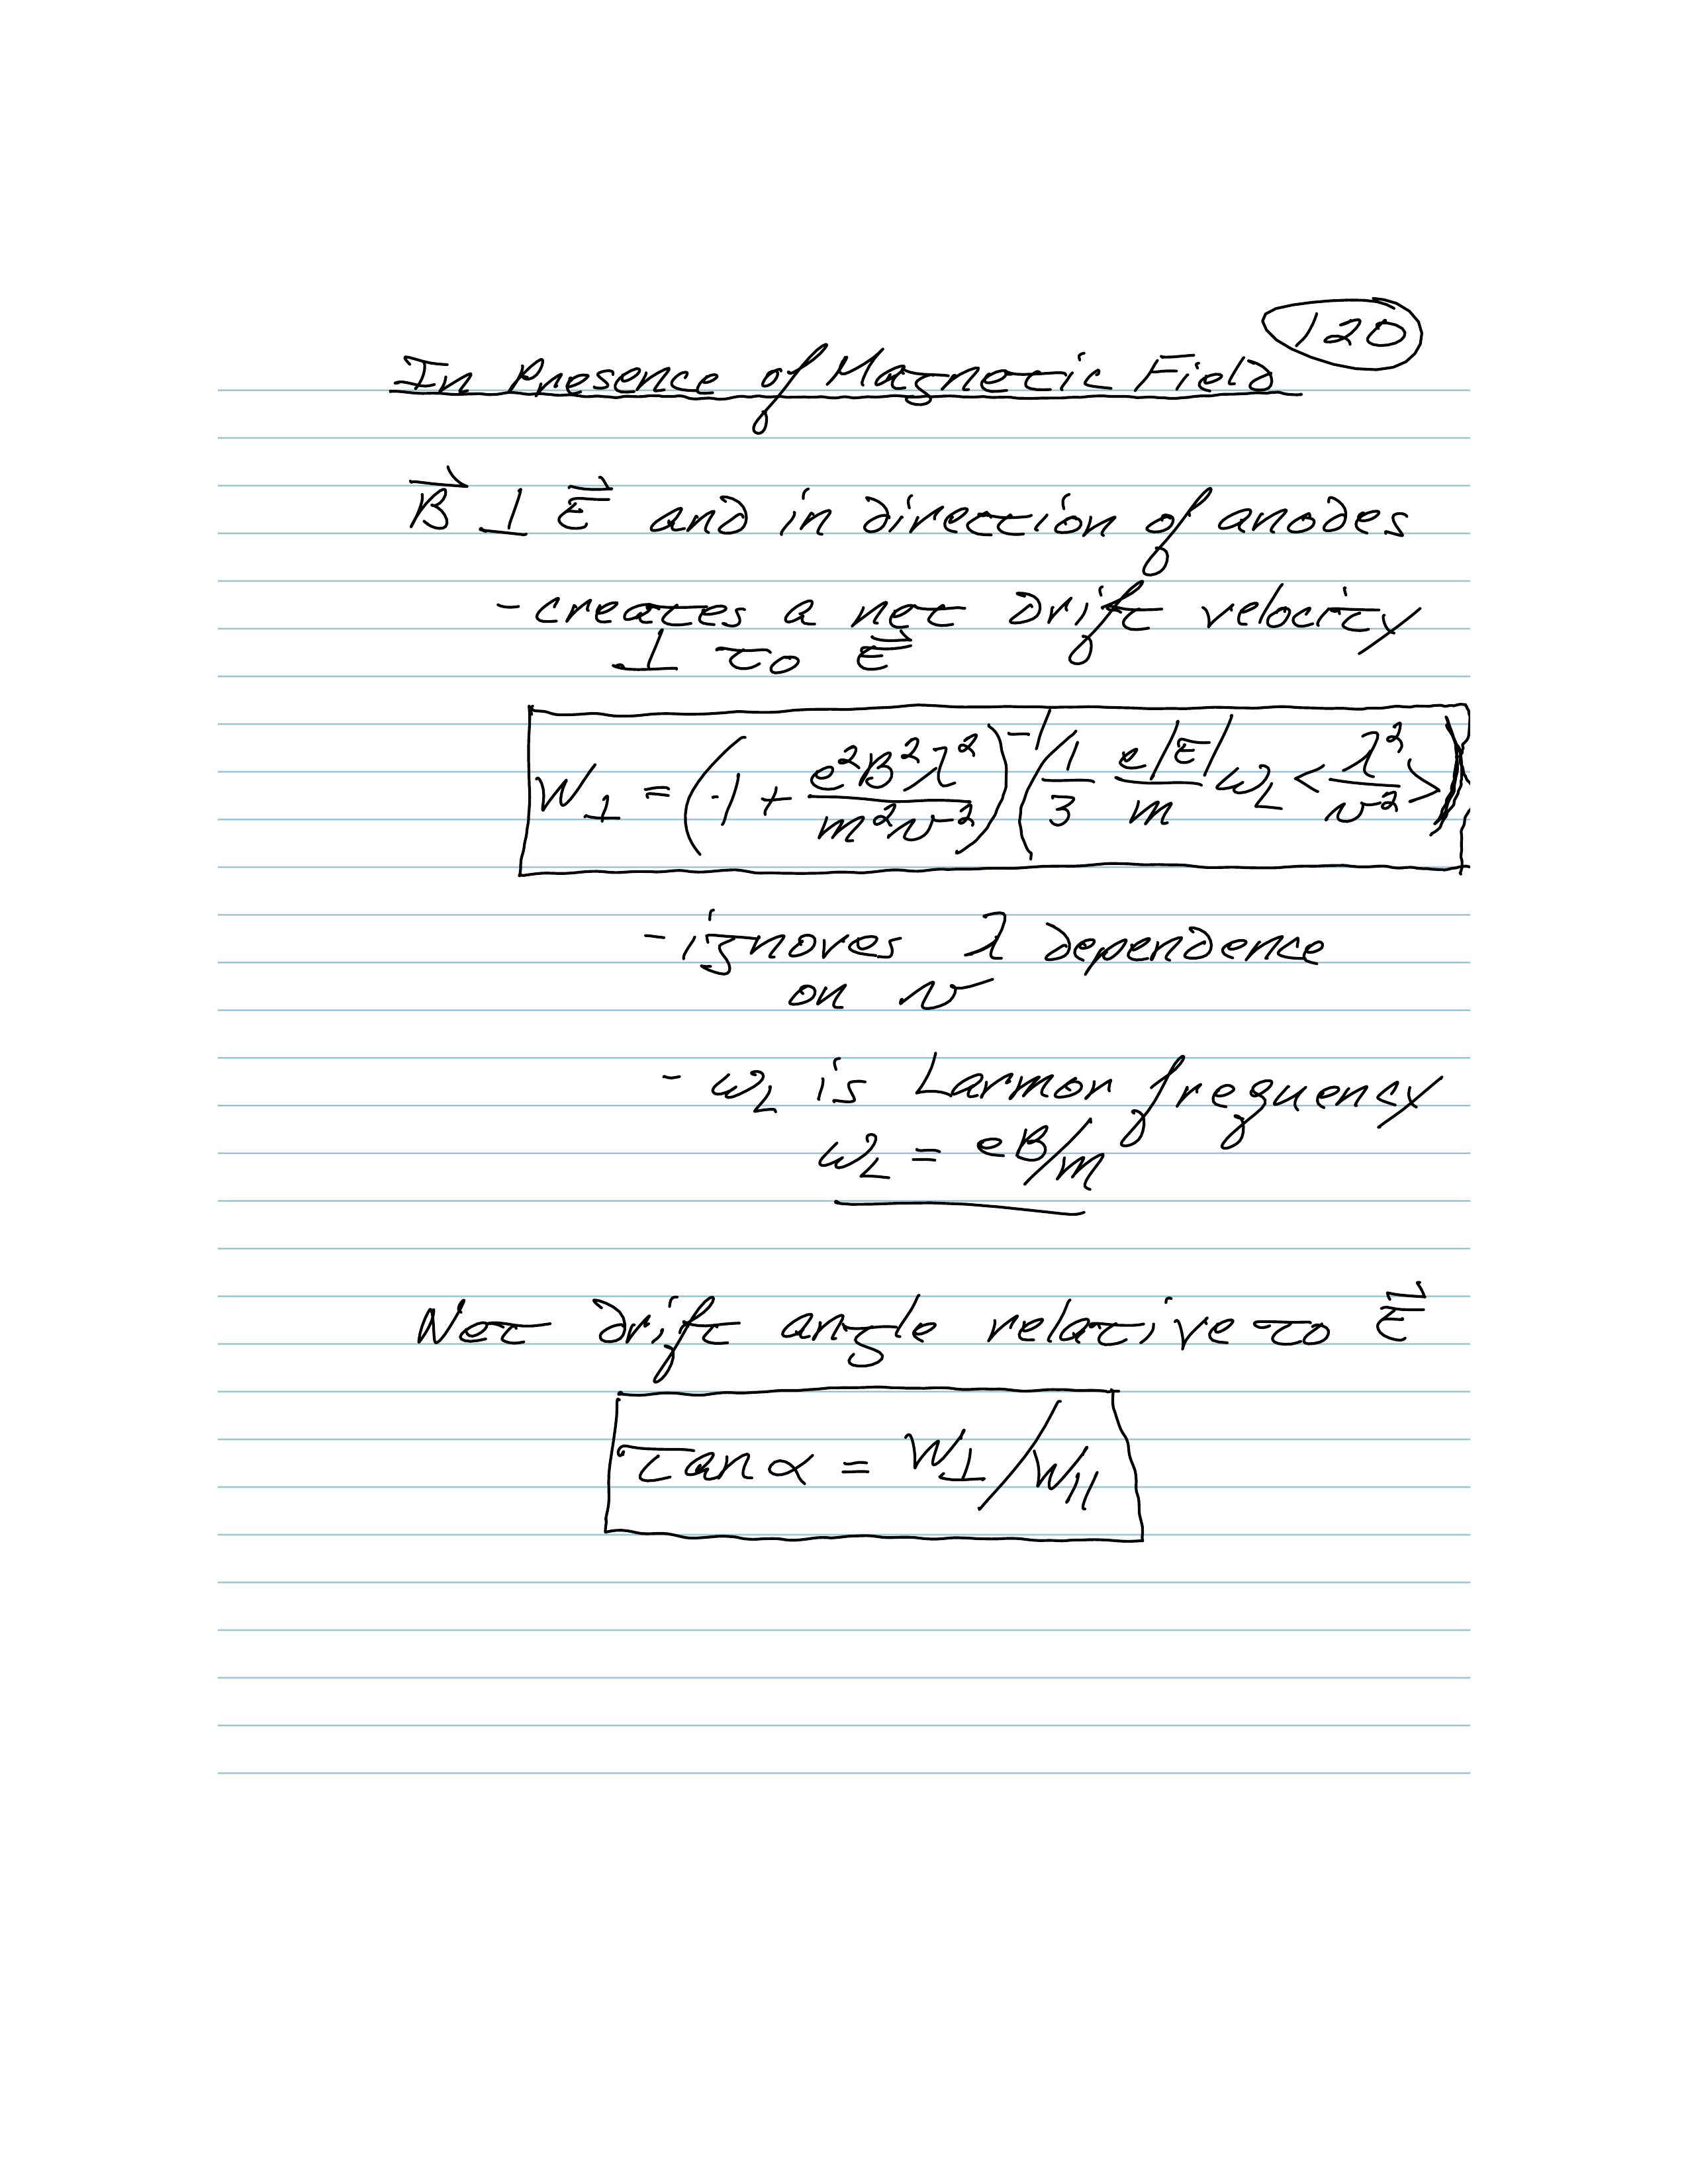 120
In Presence of Magnetic Field
B⃗ ⊥ E⃗ and in direction of anodes
- creates a net drift velocity
⊥ to E⃗
W⊥ = (1 + e²B²λ²/m²v²)⁻¹ (1/3 e|E|/m ω_L <λ²/v²>)
- ignores λ dependence
on v
- ω_L is Larmor frequency
ω_L = eB/m
Net drift angle relative to E⃗
tan α = W⊥/W||